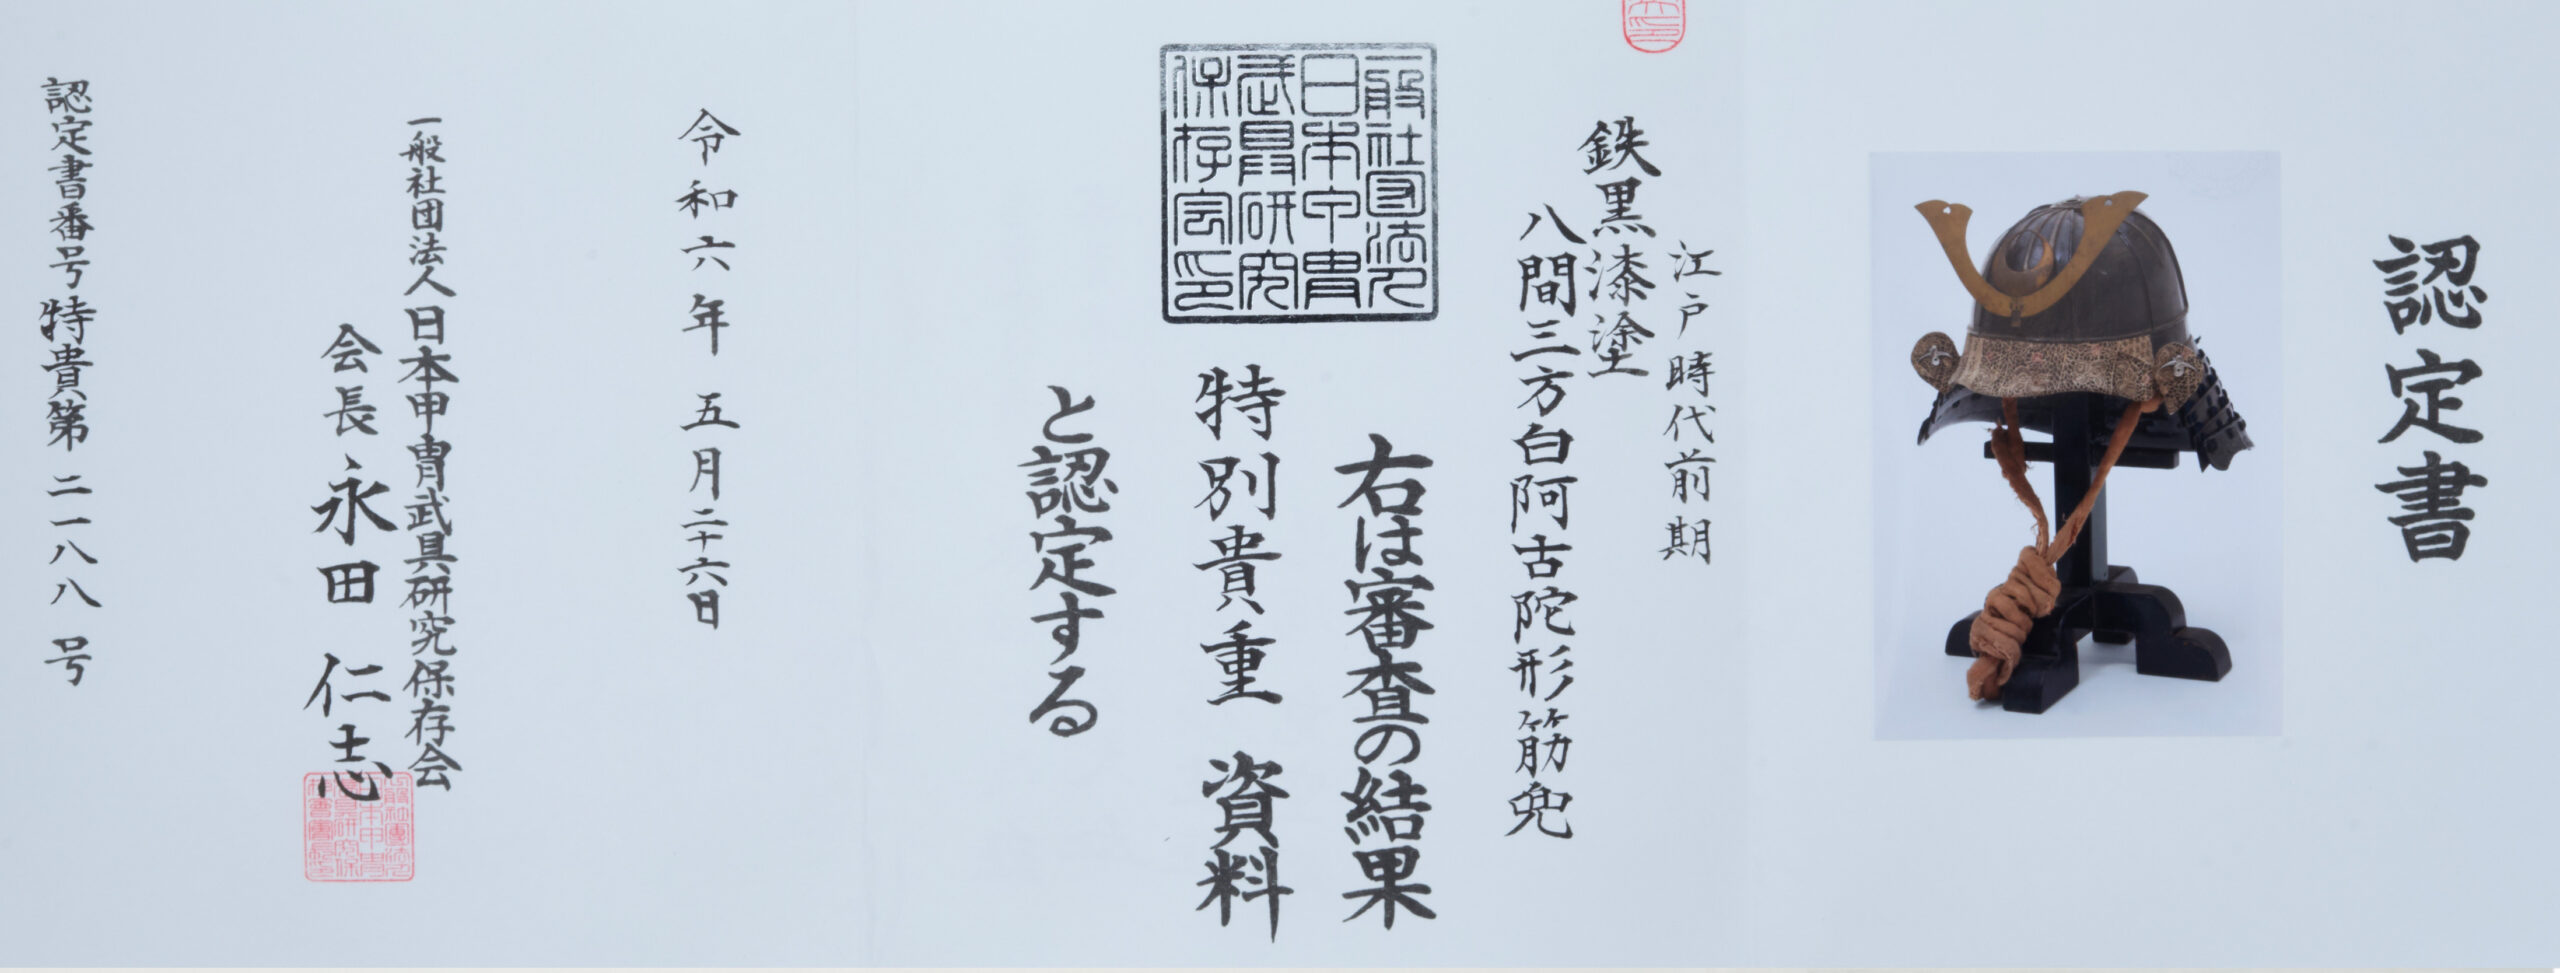 認定書
江戸時代前期
鉄黒漆塗
八間三方白阿古陀形筋兜
右は審査の結果
特別貴重 資料
と認定する
一般社団法人
日本甲冑
武具研究
保存会印
令和六年 五月二十六日
一般社団法人日本甲冑武具研究保存会
会長 永田 仁志
認定書番号特貴第 二一八八 号